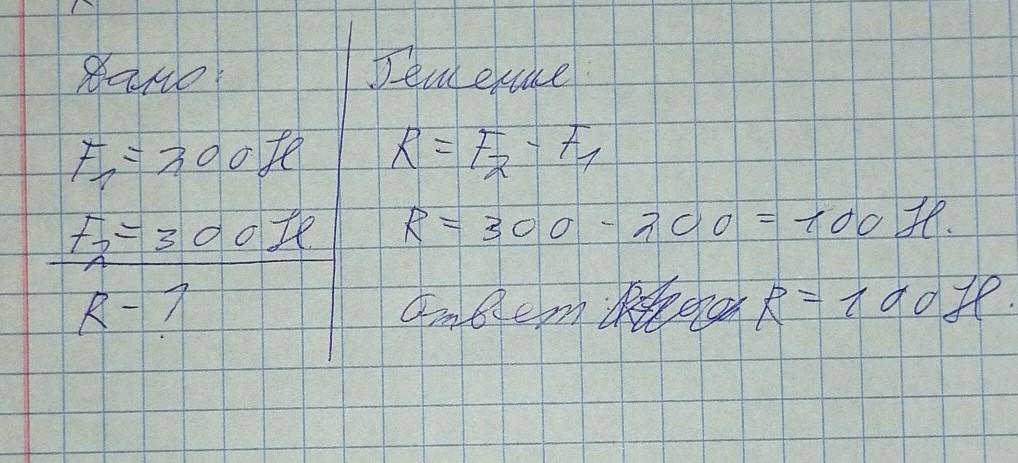 Дано:
F₁ = 200 Н
F₂ = 300 Н
R - ?
Решение:
R = F₂ - F₁
R = 300 - 200 = 100 Н.
Ответ: R = 100 Н.